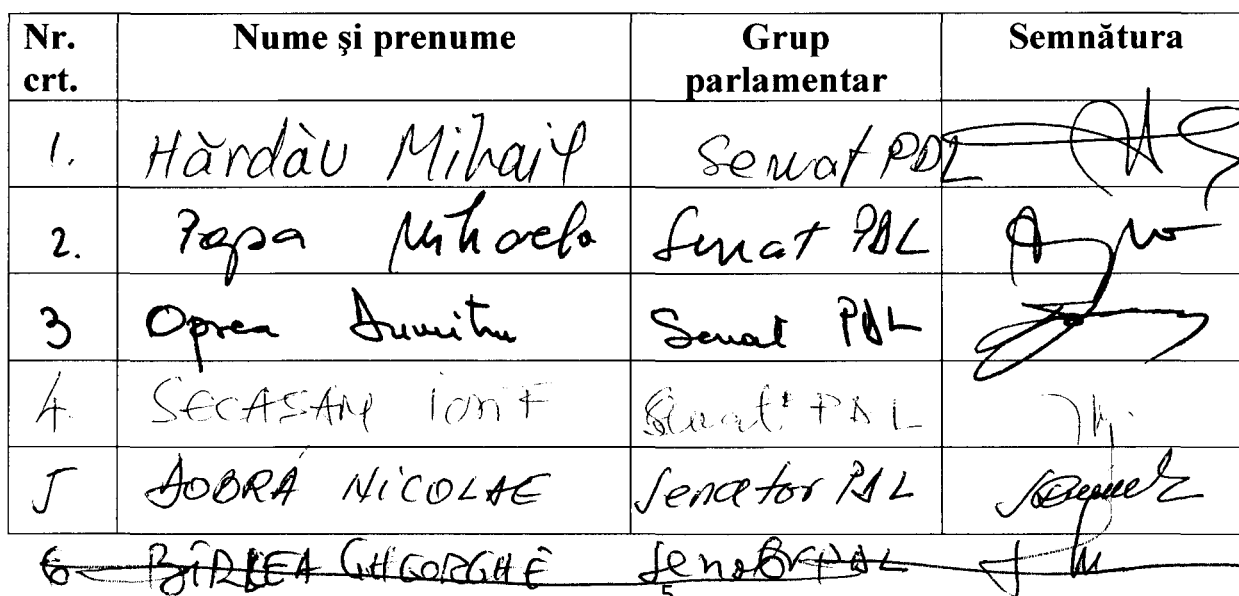 Nr. crt. Nume şi prenume Grup parlamentar Semnătura
1. Hărdău Mihail Senat PDL
2. Popa Mihaela Senat PDL
3 Oprea Dumitru Senat PDL
4. SECĂŞAN Ion F Senat PDL
5 DOBRA NICOLAE Senator PDL
6 BÎRLEA GHEORGHE Senator PDL
5